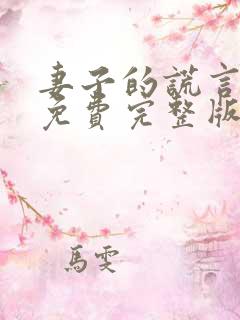 妻子的謊言
免費完整版
馬雯